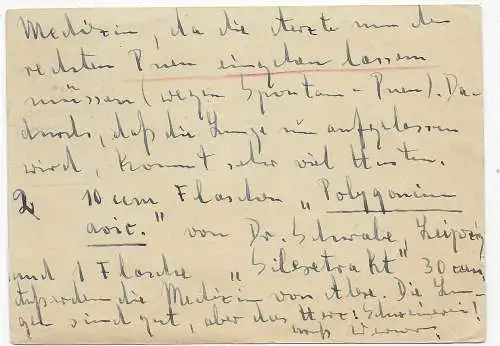 Medizin, da die Ärzte nun den
rechten Pneu eingehen lassen
müssen (wegen Spontan-Pneu). Da-
durch, daß die Lunge nun aufgelassen
wird, kommt sehr viel Husten.
2 10 ccm Flaschen "Polygonium
avic." von Dr. Schwabe, Leipzig
und 1 Flasche "Silesetrakt" 30 ccm,
außerdem die Medizin von Alex. Die Lun-
gen sind gut, aber das Herz! Schweinerei!
Werner